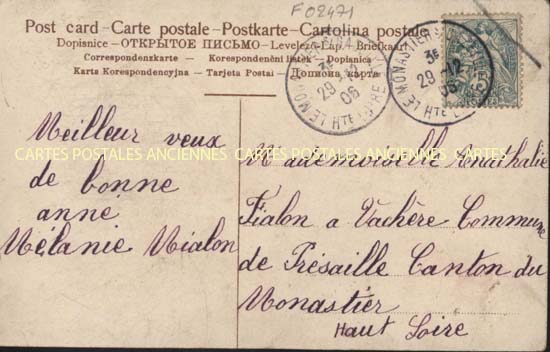 F02471
Post card - Carte postale - Postkarte - Cartolina postale
Dopisnice - ОТКРЫТОЕ ПИСЬМО - Levelező-Lap. - Briefkaart
Correspondenzkarte - Korespondenční lístek - Dopisnica -
Karta Korespondencyjna - Tarjeta Postal - Дописна карта
LE MONASTIER
3E
29 -12
06
HTE LOIRE
LE MONASTIER
3E
29 -12
06
HTE L
Meilleur veux
de bonne
anné
Mélanie Mialon
CARTES POSTALES ANCIENNES CARTES POSTALES ANCIENNES CARTES POSTALES ANCIENNES
Mademoiselle
Fialon a Vachère Commune
de Présaille Canton du
Monastier
Haut Loire